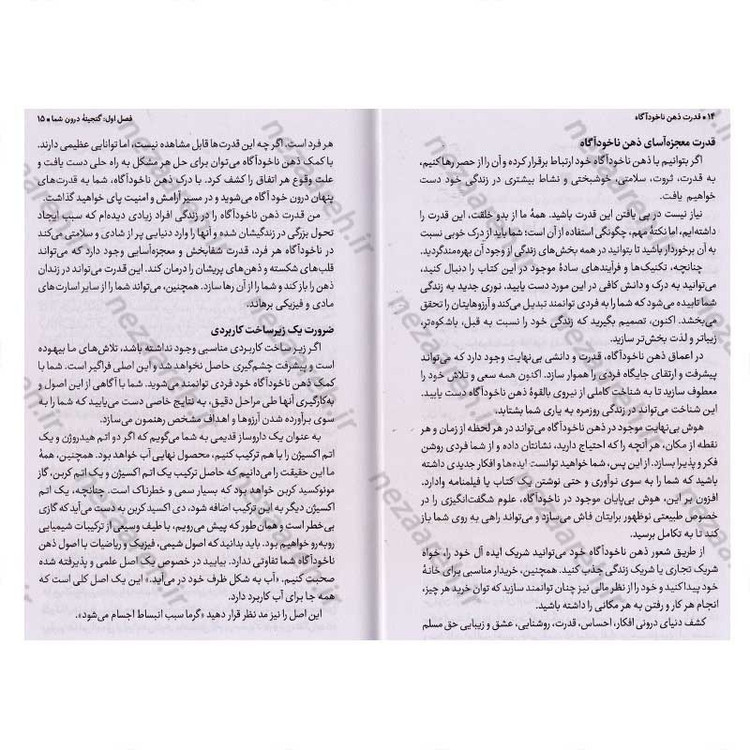 ۱۴ • قدرت ذهن ناخودآگاه
قدرت معجزه‌آسای ذهن ناخودآگاه
اگر بتوانیم با ذهن ناخودآگاه خود ارتباط برقرار کرده و آن را از حصر رها کنیم،
به قدرت، ثروت، سلامتی، خوشبختی و نشاط بیشتری در زندگی خود دست
خواهیم یافت.
نیاز نیست در پی یافتن این قدرت باشید. همهٔ ما از بدو خلقت، این قدرت را
داشته‌ایم، اما نکتهٔ مهم، چگونگی استفاده از آن است؛ شما باید از درک خوبی نسبت
به آن برخوردار باشید تا بتوانید در همه بخش‌های زندگی از وجود آن بهره‌مند گردید.
چنانچه، تکنیک‌ها و فرآیندهای سادهٔ موجود در این کتاب را دنبال کنید،
می‌توانید به درک و دانش کافی در این مورد دست یابید. نوری جدید به زندگی
شما تابیده می‌شود که شما را به فردی توانمند تبدیل می‌کند و آرزوهایتان را تحقق
می‌بخشد. اکنون، تصمیم بگیرید که زندگی خود را نسبت به قبل، باشکوه‌تر،
زیباتر و لذت بخش‌تر سازید.
در اعماق ذهن ناخودآگاه، قدرت و دانشی بی‌نهایت وجود دارد که می‌تواند
پیشرفت و ارتقای جایگاه فردی را هموار سازد. اکنون همه سعی و تلاش خود را
معطوف سازید تا به شناخت کاملی از نیروی بالقوهٔ ذهن ناخودآگاه دست یابید.
این شناخت می‌تواند در زندگی روزمره به یاری شما بشتابد.
هوش بی‌نهایت موجود در ذهن ناخودآگاه می‌تواند در هر لحظه از زمان و هر
نقطه از مکان، هر آنچه را که احتیاج دارید، نشانتان داده و از شما فردی روشن
فکر و پذیرا بسازد. از این پس، شما خواهید توانست ایده‌ها و افکار جدیدی داشته
باشید که شما را به سوی نوآوری و حتی نوشتن یک کتاب یا فیلمنامه وادارد.
افزون بر این، هوش بی‌پایان موجود در ناخودآگاه، علوم شگفت‌انگیزی را در
خصوص طبیعتی نوظهور برایتان فاش می‌سازد و می‌تواند راهی به روی شما باز
کند تا به تکامل برسید.
از طریق شعور ذهن ناخودآگاه خود می‌توانید شریک ایده آل خود را، خواه
شریک تجاری یا شریک زندگی جذب کنید. همچنین، خریدار مناسبی برای خانهٔ
خود پیدا کنید و خود را از نظر مالی نیز چنان توانمند سازید که توان خرید هر چیز،
انجام هر کار و رفتن به هر مکانی را داشته باشید.
کشف دنیای درونی افکار، احساس، قدرت، روشنایی، عشق و زیبایی حق مسلم
فصل اول: گنجینهٔ درون شما • ۱۵
هر فرد است. اگر چه این قدرت‌ها قابل مشاهده نیست، اما توانایی عظیمی دارند.
با کمک ذهن ناخودآگاه می‌توان برای حل هر مشکل به راه حلی دست یافت و
علت وقوع هر اتفاق را کشف کرد. با درک ذهن ناخودآگاه، شما به قدرت‌های
پنهان درون خود آگاه می‌شوید و در مسیر آرامش و امنیت پای خواهید گذاشت.
من قدرت ذهن ناخودآگاه را در زندگی افراد زیادی دیده‌ام که سبب ایجاد
تحول بزرگی در زندگیشان شده و آنها را وارد دنیایی پر از شادی و سلامتی می‌کند
در ناخودآگاه هر فرد، قدرت شفابخش و معجزه‌آسایی وجود دارد که می‌تواند
قلب‌های شکسته و ذهن‌های پریشان را درمان کند. این قدرت می‌تواند در زندان
ذهن را باز کند و شما را از آن رها سازد. همچنین، می‌تواند شما را از سایر اسارت‌های
مادی و فیزیکی برهاند.
ضرورت یک زیرساخت کاربردی
اگر زیر ساخت کاربردی مناسبی وجود نداشته باشد، تلاش‌های ما بیهوده
است و پیشرفت چشم‌گیری حاصل نخواهد شد و این اصلی فراگیر است. شما با
کمک ذهن ناخودآگاه خود فردی توانمند می‌شوید. شما با آگاهی از این اصول و
به‌کارگیری آنها طی مراحل دقیق، به نتایج خاصی دست می‌یابید که شما را به
سوی برآورده شدن آرزوها و اهداف مشخص رهنمون می‌سازد.
به عنوان یک داروساز قدیمی به شما می‌گویم که اگر دو اتم هیدروژن و یک
اتم اکسیژن را با هم ترکیب کنیم، محصول نهایی آب خواهد بود. همچنین، همهٔ
ما این حقیقت را می‌دانیم که حاصل ترکیب یک اتم اکسیژن و یک اتم کربن، گاز
مونوکسید کربن خواهد بود که بسیار سمی و خطرناک است. چنانچه، یک اتم
اکسیژن دیگر به این ترکیب اضافه شود، دی اکسید کربن به دست می‌آید که گازی
بی‌خطر است و همان‌طور که پیش می‌رویم، با طیف وسیعی از ترکیبات شیمیایی
روبه‌رو خواهیم بود. باید بدانید که اصول شیمی، فیزیک و ریاضیات با اصول ذهن
ناخودآگاه شما تفاوتی ندارد. بیایید در خصوص یک اصل علمی و پذیرفته شده
صحبت کنیم. «آب به شکل ظرف خود در می‌آید.» این یک اصل کلی است که
همه جا برای آب کاربرد دارد.
این اصل را نیز مد نظر قرار دهید «گرما سبب انبساط اجسام می‌شود».
nezaareh.ir